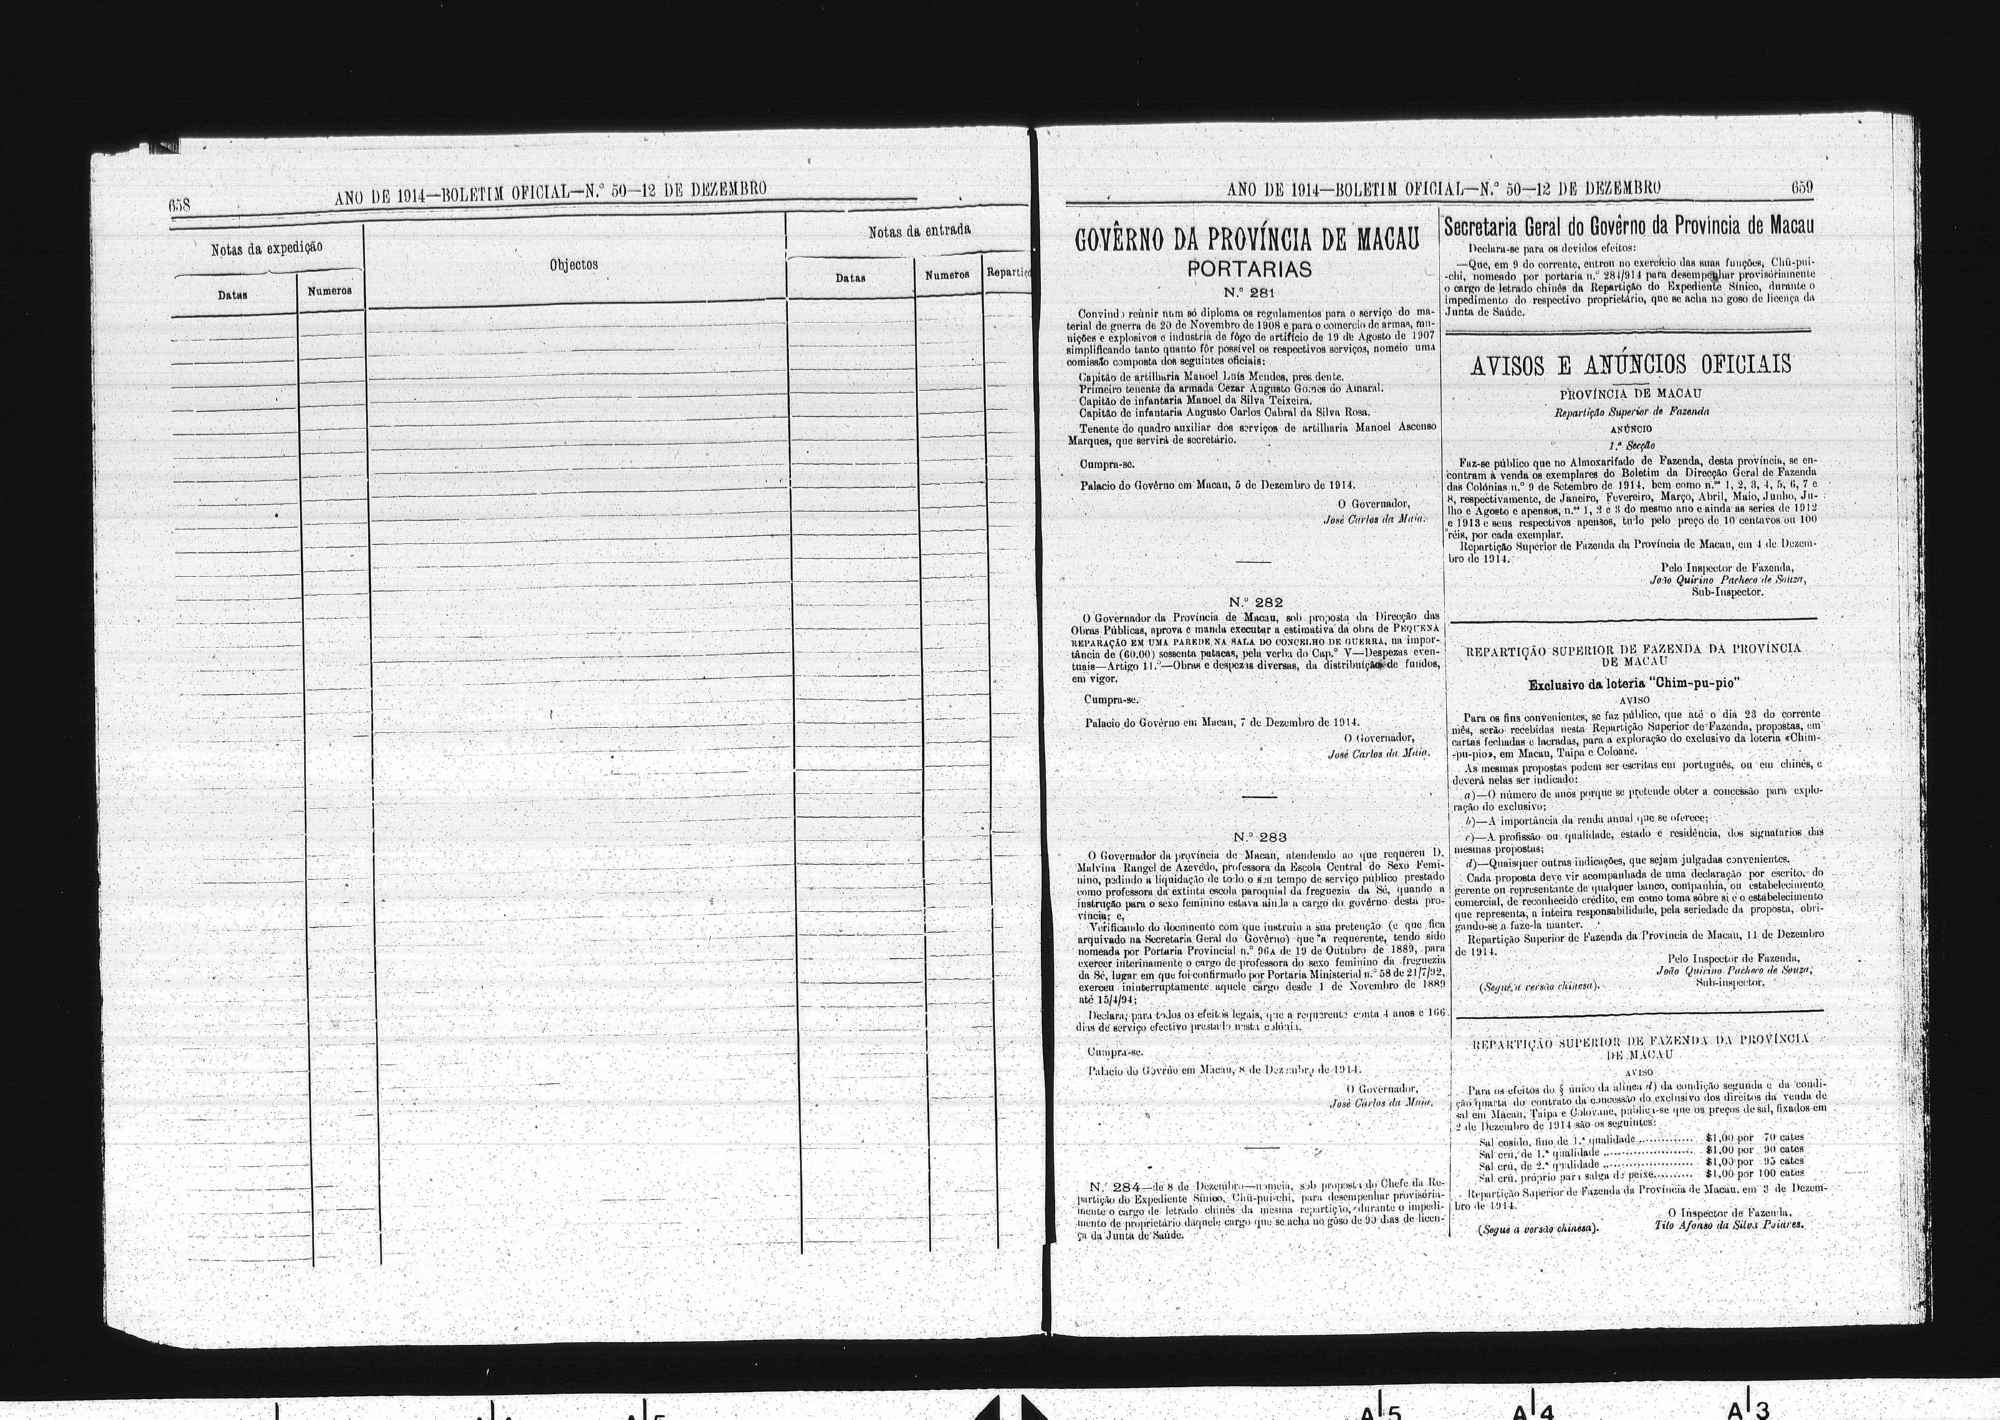 658
ANO DE 1914—BOLETIM OFICIAL—N.º 50—12 DE DEZEMBRO
Notas da expedição
Objectos
Notas da entrada
Datas
Numeros
Datas
Numeros
Repartiç
ANO DE 1914—BOLETIM OFICIAL—N.º 50—12 DE DEZEMBRO
659
GOVÊRNO DA PROVÍNCIA DE MACAU
PORTARIAS
N.º 281
Convindo reùnir num só diploma os regulamentos para o serviço do ma-
terial de guerra de 20 de Novembro de 1908 e para o comercio de armas, mu-
nições e explosivos e industria de fôgo de artifício de 19 de Agosto de 1907
simplificando tanto quanto fôr possível os respectivos serviços, nomeio uma
comissão composta dos seguintes oficiais:
Capitão de artilharia Manoel Luís Mendes, pres dente.
Primeiro tenente da armada Cezar Augusto Gomes do Amaral.
Capitão de infantaria Manoel da Silva Teixeira.
Capitão de infantaria Augusto Carlos Cabral da Silva Rosa.
Tenente do quadro auxiliar dos serviços de artilharia Manoel Ascenso
Marques, que servirá de secretário.
Cumpra-se.
Palacio do Govêrno em Macau, 5 de Dezembro de 1914.
O Governador,
José Carlos da Maia.
N.º 282
O Governador da Província de Macau, sob proposta da Direcção das
Obras Públicas, aprova e manda executar a estimativa da obra de PEQUENA
REPARAÇÃO EM UMA PAREDE NA SALA DO CONCELHO DE GUERRA, na impor-
tância de (60,00) sessenta patacas, pela verba do Cap.º V—Despezas even-
tuais—Artigo 11.º—Obras e despezas diversas, da distribuição de fundos,
em vigor.
Cumpra-se.
Palacio do Govêrno em Macau, 7 de Dezembro de 1914.
O Governador,
José Carlos da Maia.
N.º 283
O Governador da província de Macau, atendendo ao que requereu D.
Malvina Rangel de Azevêdo, professora da Escola Central do Sexo Femi-
nino, pedindo a liquidação de todo o seu tempo de serviço público prestado
como professora da extinta escola paroquial da freguezia da Sé, quando a
instrução para o sexo feminino estava ainda a cargo do govêrno desta pro-
víncia; e,
Verificando do documento com que instruiu a sua pretenção (e que fica
arquivado na Secretaria Geral do Govêrno) que a requerente, tendo sido
nomeada por Portaria Provincial n.º 96A de 19 de Outubro de 1889, para
exercer interinamente o cargo de professora do sexo feminino da freguezia
da Sé, lugar em que foi confirmado por Portaria Ministerial n.º 58 de 21/7/92,
exerceu ininterruptamente aquele cargo desde 1 de Novembro de 1889
até 15/4/94;
Declara, para todos os efeitos legais, que a requerente conta 4 anos e 166
dias de serviço efectivo prestado nesta colónia.
Cumpra-se.
Palacio do Govrno em Macau, 8 de Dezembro de 1914.
O Governador,
José Carlos da Maia.
N.º 284—de 8 de Dezembro—nomeia, sob proposta do Chefe da Re-
partição do Expediente Sínico, Chü-pui-chi, para desempenhar provisória-
mente o cargo de letrado chinês da mesma repartição, durante o impedi-
mento de proprietário daquele cargo que se acha no gôso de 90 dias de licen-
ça da Junta de Saúde.
Secretaria Geral do Govêrno da Província de Macau
Declara-se para os devidos efeitos:
—Que, em 9 do corrente, entrou no exercício das suas funções, Chü-pui-
-chi, nomeado por portaria n.º 284/914 para desempenhar provisóriamente
o cargo de letrado chinês da Repartição do Expediente Sínico, durante o
impedimento do respectivo proprietário, que se acha no goso de licença da
Junta de Saúde.
AVISOS E ANÚNCIOS OFICIAIS
PROVÍNCIA DE MACAU
Repartição Superior de Fazenda
ANÚNCIO
1.ª Secção
Faz-se público que no Almoxarifado de Fazenda, desta província, se en-
contram à venda os exemplares do Boletim da Direcção Geral de Fazenda
das Colónias n.º 9 de Setembro de 1914, bem como n.ºs 1, 2, 3, 4, 5, 6, 7 e
8, respectivamente, de Janeiro, Fevereiro, Março, Abril, Maio, Junho, Ju-
lho e Agosto e apensos, n.ºs 1, 2 e 3 do mesmo ano e ainda as series de 1912
e 1913 e seus respectivos apensos, tudo pelo preço de 10 centavos ou 100
réis, por cada exemplar.
Repartição Superior de Fazenda da Província de Macau, em 4 de Dezem-
bro de 1914.
Pelo Inspector de Fazenda,
João Quirino Pacheco de Souza,
Sub-Inspector.
REPARTIÇÃO SUPERIOR DE FAZENDA DA PROVÍNCIA
DE MACAU
Exclusivo da loteria "Chim-pu-pio"
AVISO
Para os fins convenientes, se faz público, que até o dia 23 do corrente
mês, serão recebidas nesta Repartição Superior de Fazenda, propostas, em
cartas fechadas e lacradas, para a exploração do exclusivo da loteria «Chim-
-pu-pio», em Macau, Taipa e Coloane.
As mesmas propostas podem ser escritas em português, ou em chinês, e
deverá nelas ser indicado:
a)—O número de anos porque se pretende obter a concessão para explo-
ração do exclusivo;
b)—A importância da renda anual que se oferece;
c)—A profissão ou qualidade, estado e residência, dos signatarios das
mesmas propostas;
d)—Quaisquer outras indicações, que sejam julgadas convenientes.
Cada proposta deve vir acompanhada de uma declaração por escrito, do
gerente ou representante de qualquer banco, companhia, ou estabelecimento
comercial, de reconhecido crédito, em como toma sôbre si e o estabelecimento
que representa, a inteira responsabilidade, pela seriedade da proposta, obri-
gando-se a faze-la manter.
Repartição Superior de Fazenda da Província de Macau, 11 de Dezembro
de 1914.
Pelo Inspector de Fazenda,
João Quirino Pacheco de Souza,
Sub-inspector.
(Segue a versão chinesa).
REPARTIÇÃO SUPERIOR DE FAZENDA DA PROVÍNCIA
DE MACAU
AVISO
Para os efeitos do § único da alínea d) da condição segunda e da condi-
ção quarta do contrato da concessão do exclusivo dos direitos da venda de
sal em Macau, Taipa e Colovane, publica-se que os preços de sal, fixados em
2 de Dezembro de 1914 são os seguintes:
Sal cosido, fino de 1.ª qualidade .............. $1,00 por 70 cates
Sal crú, de 1.ª qualidade ....................... $1,00 por 90 cates
Sal crú, de 2.ª qualidade ....................... $1,00 por 95 cates
Sal crú, próprio para salga de peixe.......... $1,00 por 100 cates
Repartição Superior de Fazenda da Província de Macau, em 3 de Dezem-
bro de 1914.
O Inspector de Fazenda,
Tito Afonso da Silva Poiares.
(Segue a versão chinesa).
A 5
A 4
A 3